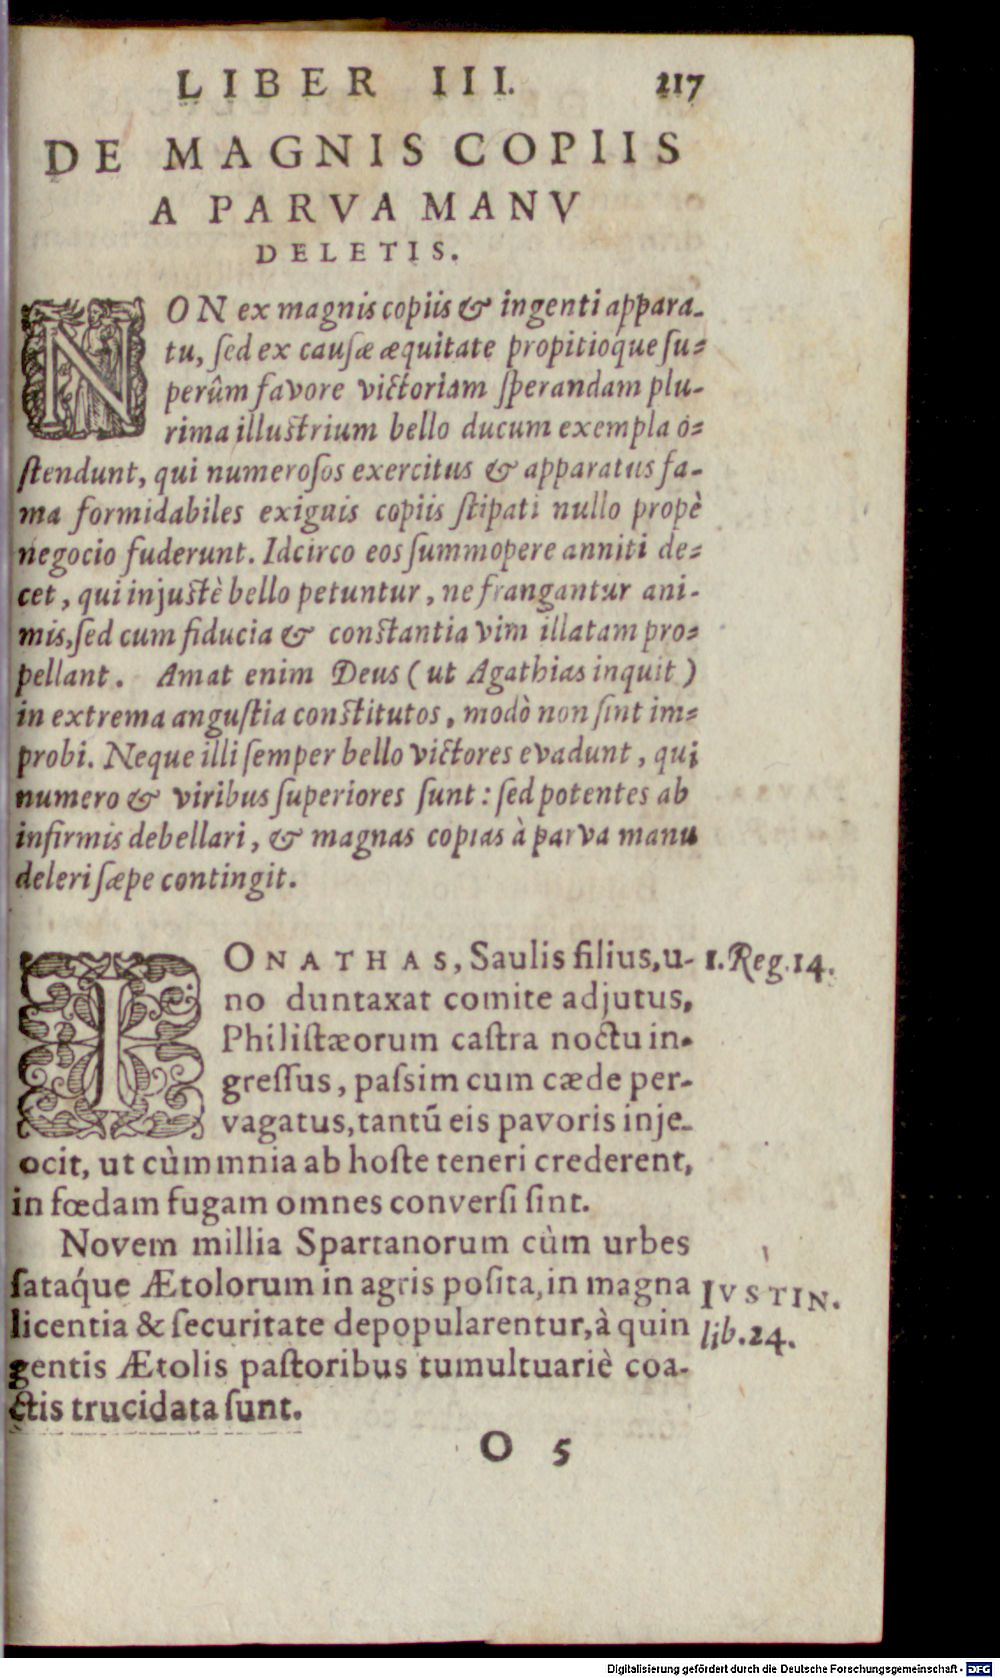 LIBER III. 217
DE MAGNIS COPIIS
A PARVA MANV
DELETIS.
NON ex magnis copiis & ingenti appara-
tu, sed ex causæ æquitate propitioque su-
perûm favore victoriam sperandam plu-
rima illustrium bello ducum exempla o-
stendunt, qui numerosos exercitus & apparatus fa-
ma formidabiles exiguis copiis stipati nullo propè
negocio fuderunt. Idcirco eos summopere anniti de-
cet, qui injustè bello petuntur, ne frangantur ani-
mis, sed cum fiducia & constantia vim illatam pro-
pellant. Amat enim Deus (ut Agathias inquit)
in extrema angustia constitutos, modò non sint im-
probi. Neque illi semper bello victores evadunt, qui
numero & viribus superiores sunt: sed potentes ab
infirmis debellari, & magnas copias à parva manu
deleri sæpe contingit.
IONATHAS, Saulis filius, u-
no duntaxat comite adjutus,
Philistæorum castra noctu in-
gressus, passim cum cæde per-
vagatus, tantũ eis pavoris inje-
ocit, ut cùm mnia ab hoste teneri crederent,
in fœdam fugam omnes conversi sint.
1. Reg. 14.
Novem millia Spartanorum cùm urbes
sataq́ue Ætolorum in agris posita, in magna
licentia & securitate depopularentur, à quin
gentis Ætolis pastoribus tumultuariè coa-
ctis trucidata sunt.
IVSTIN.
lib. 24.
O 5
Digitalisierung gefördert durch die Deutsche Forschungsgemeinschaft - DFG